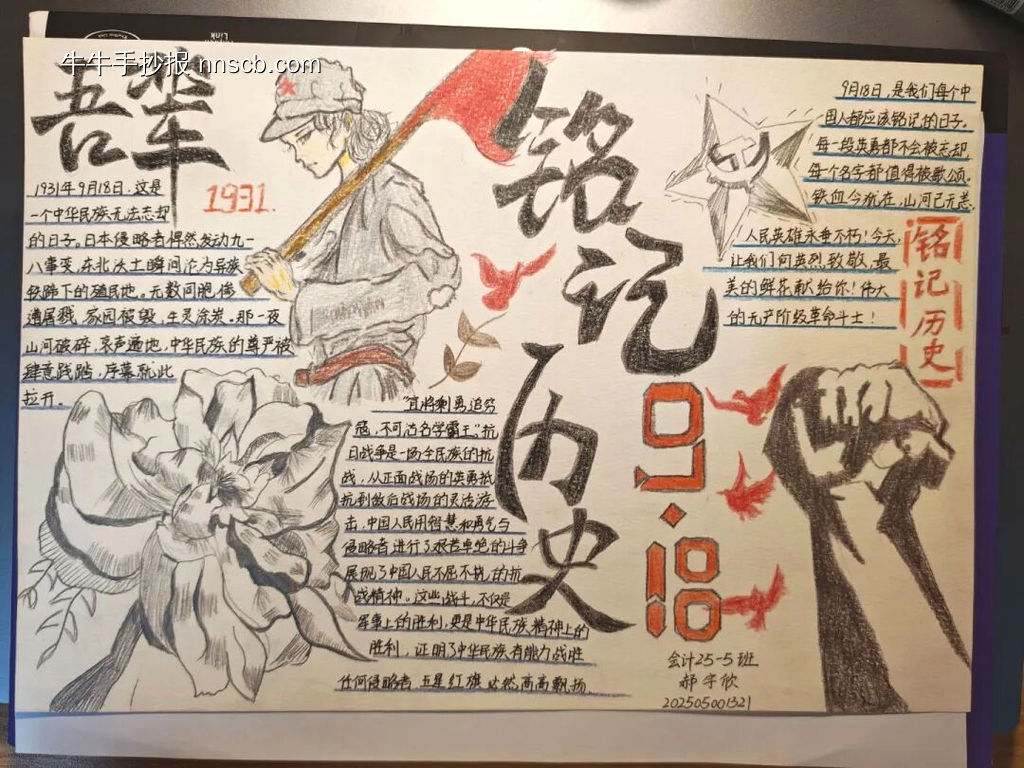 牛牛手抄报 nnscb.com
吾辈
1931年9月18日,这是
一个中华民族无法忘却
的日子。日本侵略者悍然发动九一
八事变,东北沃土瞬间沦为异族
铁蹄下的殖民地。无数同胞惨
遭屠戮,家园被毁,生灵涂炭。那一夜
山河破碎,哀声遍地,中华民族的尊严被
肆意践踏,序幕就此
拉开。
1931.
铭记历史
9.18
"宜将剩勇追穷
寇,不可沽名学霸王."抗
日战争是一场全民族的抗
战,从正面战场的英勇抵
抗到敌后战场的灵活游
击,中国人民用智慧和勇气与
侵略者进行了艰苦卓绝的斗争
展现了中国人民不屈不挠的抗
战精神。这些战斗,不仅是
军事上的胜利,更是中华民族精神上的
胜利,证明了中华民族有能力战胜
任何侵略者,五星红旗必然高高飘扬
9月18日,是我们每个中
国人都应该铭记的日子.
每一段英勇都不会被忘却,
每个名字都值得被歌颂.
铁血今犹在,山河已无恙.
人民英雄永垂不朽!今天,
让我们向英烈致敬,最
美的鲜花献给你!伟大
的无产阶级革命斗士!
铭记历史
会计25-5班
郝宇欣
202505001321